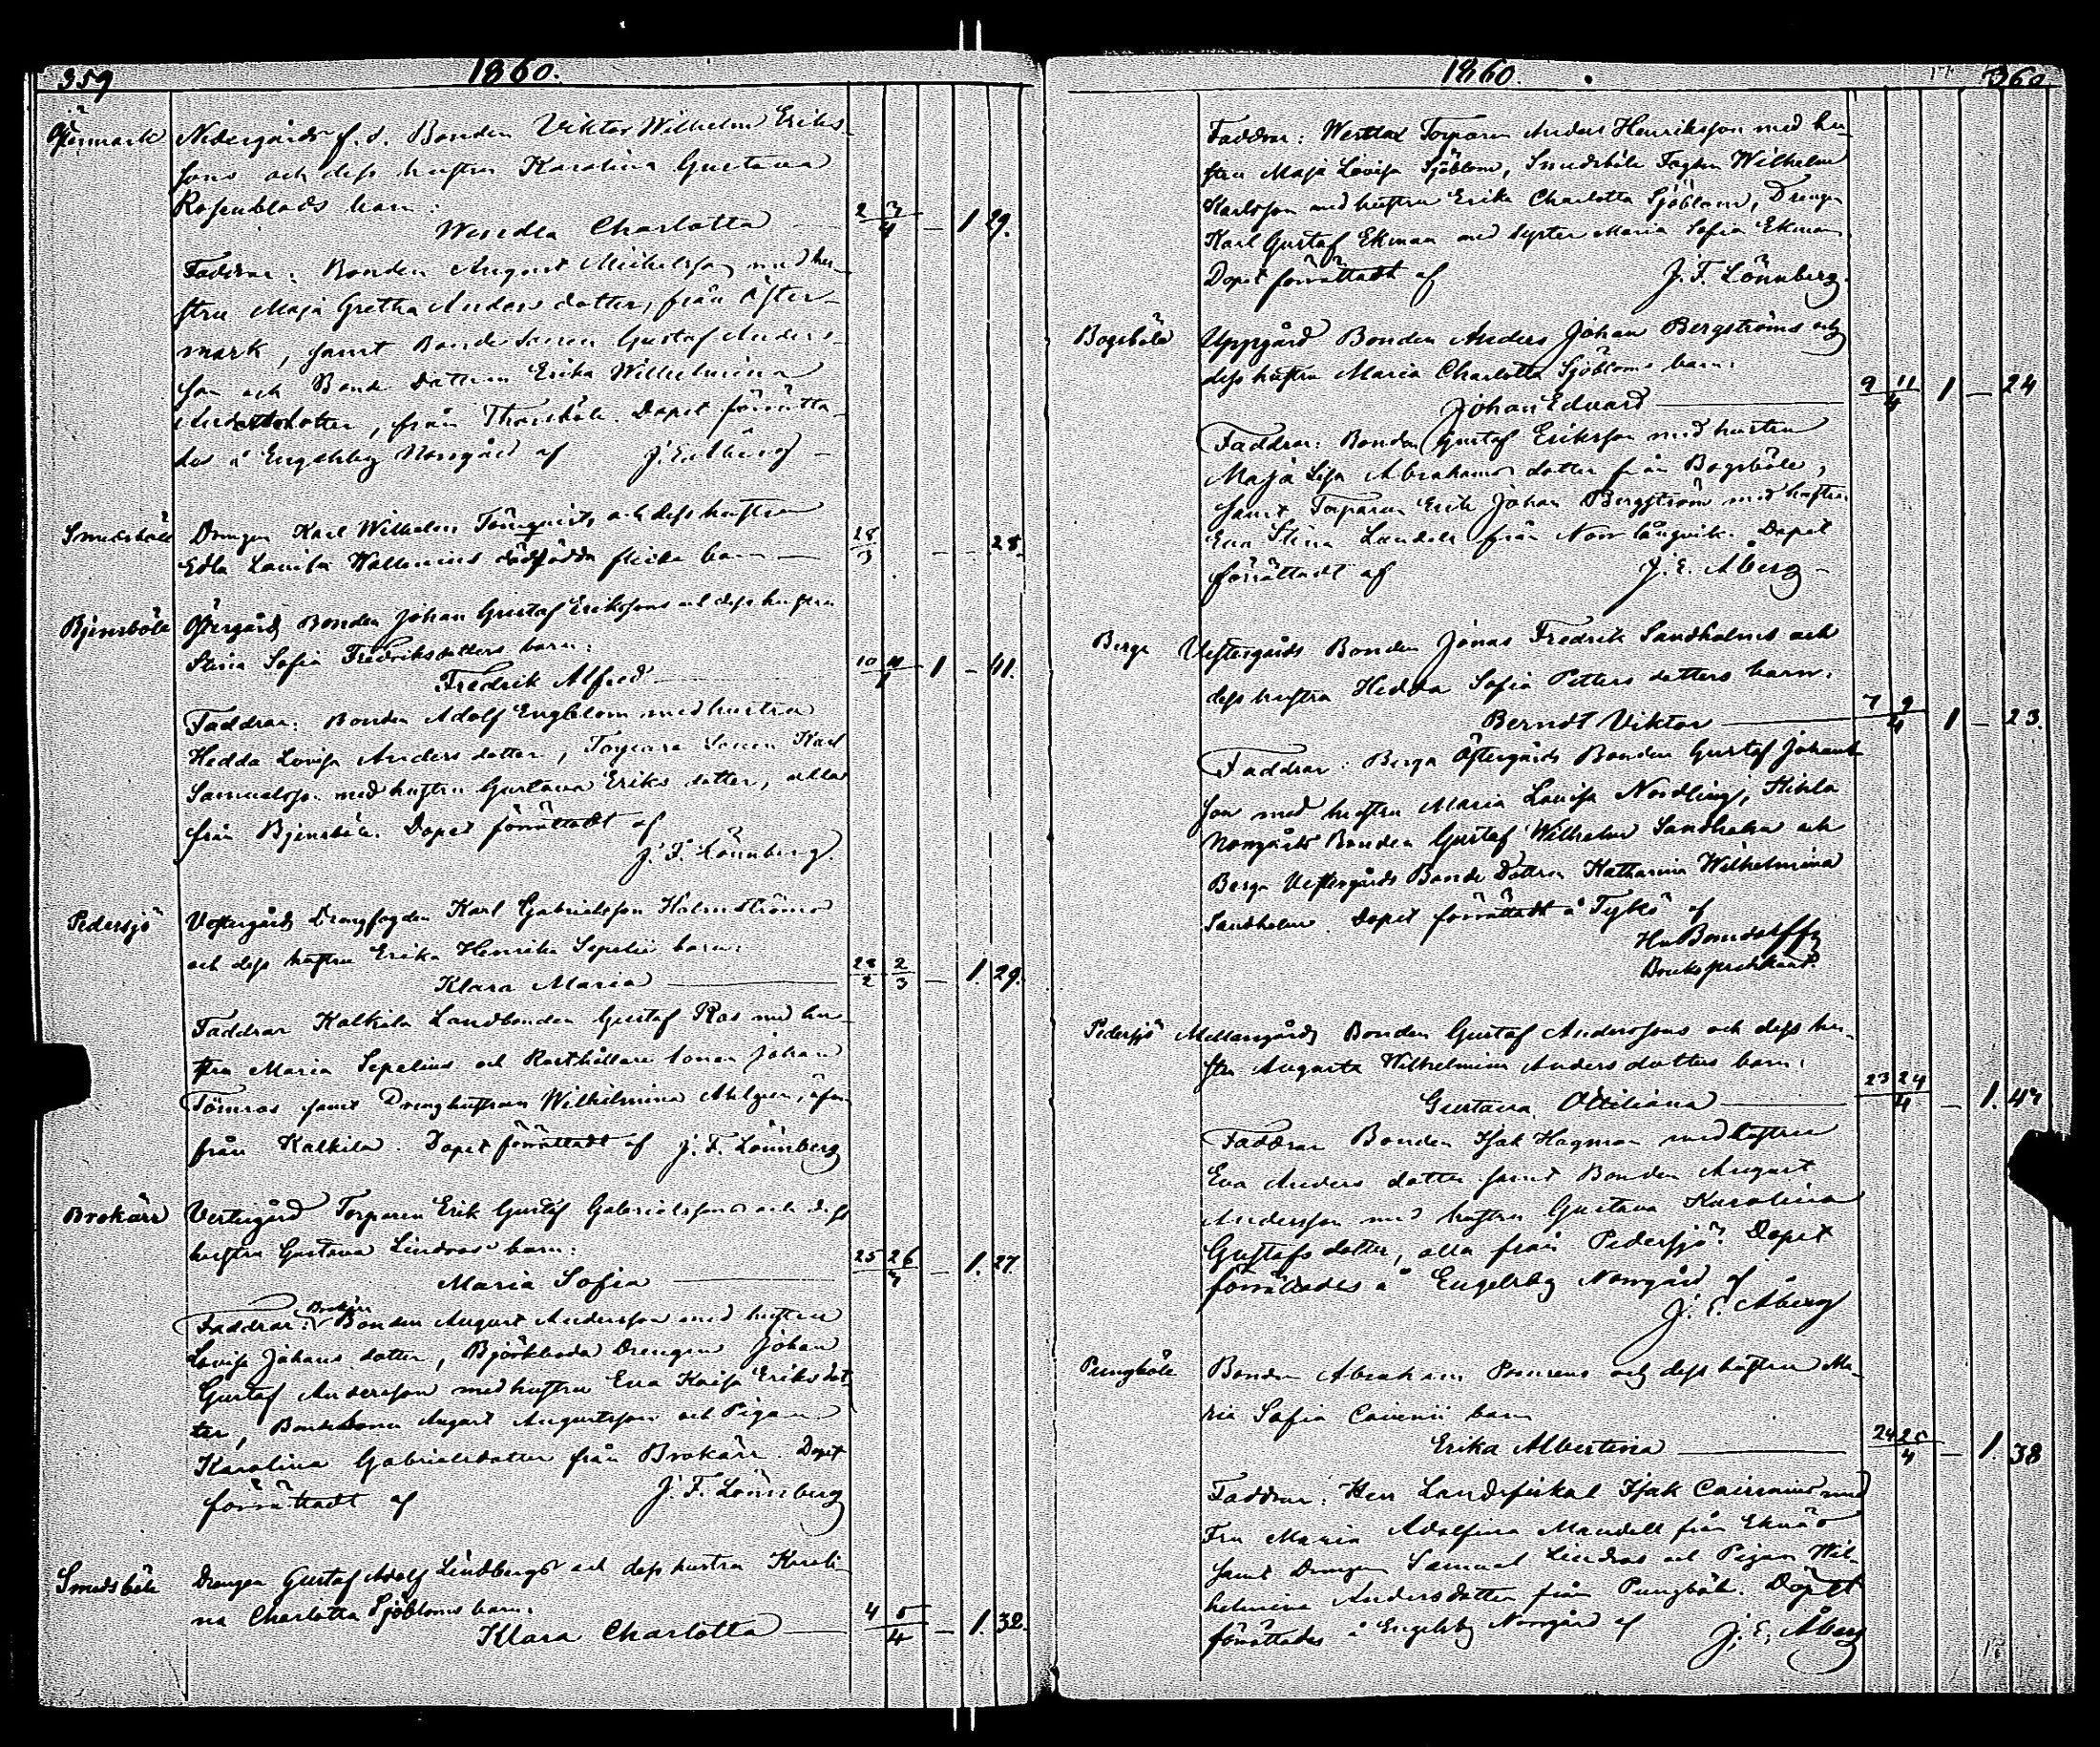 359
1860.
Östermark Nedergårds f. d. Bonden Viktor Wilhelm Eriks-
sons och dess hustru Karolina Gustava
Rosenblads barn:
Wendla Charlotta 2 3/4 – 1 29.
Faddrar: Bonden August Michelsson med hu-
stru Maja Gretha Anders dotter, från Öster-
mark, samt Bonde Sonen Gustaf Anders-
son och Bonde Dottern Erika Wilhelmina
Andersdotter, från Thorsböle. Dopet förrätta-
des å Engelsby Norrgård af J. E. Åberg
Smedsböle Drengen Karl Wilhelm Törnqvists och dess hustru
Edla Lovisa Wallenius dödfödda flicka barn 28/3 – – 28.
Bjensböle Östergårds Bonden Johan Gustaf Erikssons och dess hustru
Stina Sofia Fredriksdotters barn:
Fredrik Alfred 10 11/4 1 – 41.
Faddrar: Bonden Adolf Engblom med hustru
Hedda Lovisa Anders dotter, Torpare Sonen Karl
Samuelsson med hustru Gustava Eriks dotter, alla
från Bjensböle. Dopet förrättadt af
J. F. Lönnberg.
Pedersjö Vestergårds Drengfogden Karl Gabrielsson Holmströms
och dess hustru Erika Henrika Sepelii barn:
Klara Maria 28/2 2/3 – 1. 29.
Faddrar Kalkila Landbonden Gustaf Ros med hu-
stru Maria Sepelius och Rusthållare Sonen Johan
Törnros samt Drenghustrun Wilhelmina Ahlgren, äfven
från Kalkila. Dopet förrättadt af J. F. Lönnberg
Brokärr Vestergård Torparen Erik Gustaf Gabrielssons och dess
hustru Gustava Lindroos barn:
Maria Sofia 25 26/3 – 1. 27.
Brokärr
Faddrar: Bonden August Andersson med hustru
Lovisa Johans dotter, Björkboda Drengen Johan
Gustaf Andersson med hustru Eva Kaisa Eriksdot-
ter, Bondesonen August Augustsson och Pigan
Karolina Gabrielsdotter från Brokärr. Dopet
förrättadt af J. F. Lönnberg
Smedsböle Drengen Gustaf Adolf Lindbergs och dess hustru Karoli-
na Charlotta Sjöbloms barn:
Klara Charlotta 4 5/4 – 1. 32.
1860.
360
Faddrar: Westlax Torparen Anders Henriksson med hu-
stru Maja Lovisa Sjöblom, Smedsböle Fogden Wilhelm
Karlsson med hustru Erika Charlotta Sjöblom, Drengen
Karl Gustaf Ekman med syster Maria Sofia Ekman
Dopet förrättadt af J. F. Lönnberg.
Bogsböle Uppgård Bonden Anders Johan Bergströms och
dess hustru Maria Charlotta Sjöbloms barn:
Johan Edvard 9 11/4 1 – 24
Faddrar: Bonden Gustaf Eriksson med hustru
Maja Lisa Abrahams dotter från Bogsböle,
samt Torparen Erik Johan Bergström med hustru
Eva Stina Lundell från Norrlångvik. Dopet
förrättadt af J. E. Åberg
Berga Vestergårds Bonden Jonas Fredrik Sandholms och
dess hustru Hedda Sofia Petters dotters barn:
Berndt Viktor 7 9/4 1 – 23.
Faddrar: Berga Östergårds Bonden Gustaf Johans-
son med hustru Maria Lovisa Nordling,
Norrgårds Bonden Gustaf Wilhelm Sandholm och
Berga Vestergårds Bonde Dottren Katharina Wilhelmina
Sandholm. Dopet förrättadt å Tykö af
Bruks predikant.
Pedersjö Mellangårds Bonden Gustaf Anderssons och dess hu-
stru Augusta Wilhelmina Anders dotters barn:
Gustava Ottiliana 23 24/4 – 1. 47
Faddrar Bonden Isak Hagman med hustru
Eva Anders dotter samt Bonden August
Andersson med hustru Gustava Karolina
Gustafs dotter, alla från Pedersjö. Dopet
förrättades å Engelsby Norrgård af
J. E. Åberg
Pungböle Bonden Abraham och dess hustru Ma-
ria Sofia barn
Erika Albertina 24 25/4 – 1. 38
Faddrar: Herr Landsfiskal Isak med
Fru Maria Adolfina Mandell från Eknäs
samt Drengen Samuel Lindros och Pigan Wil-
helmina Andersdotter från Pungböle. Dopet
förrättades å Engelsby Norrgård af J. E. Åberg